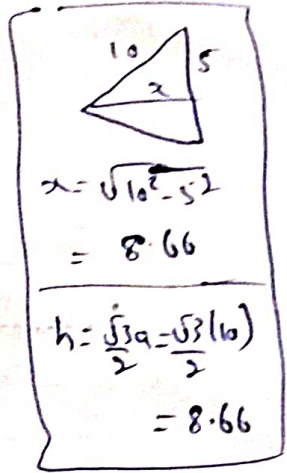 10
5
x
x = √10² - 5²
= 8.66
h = √3a/2 = √3(10)/2
= 8.66